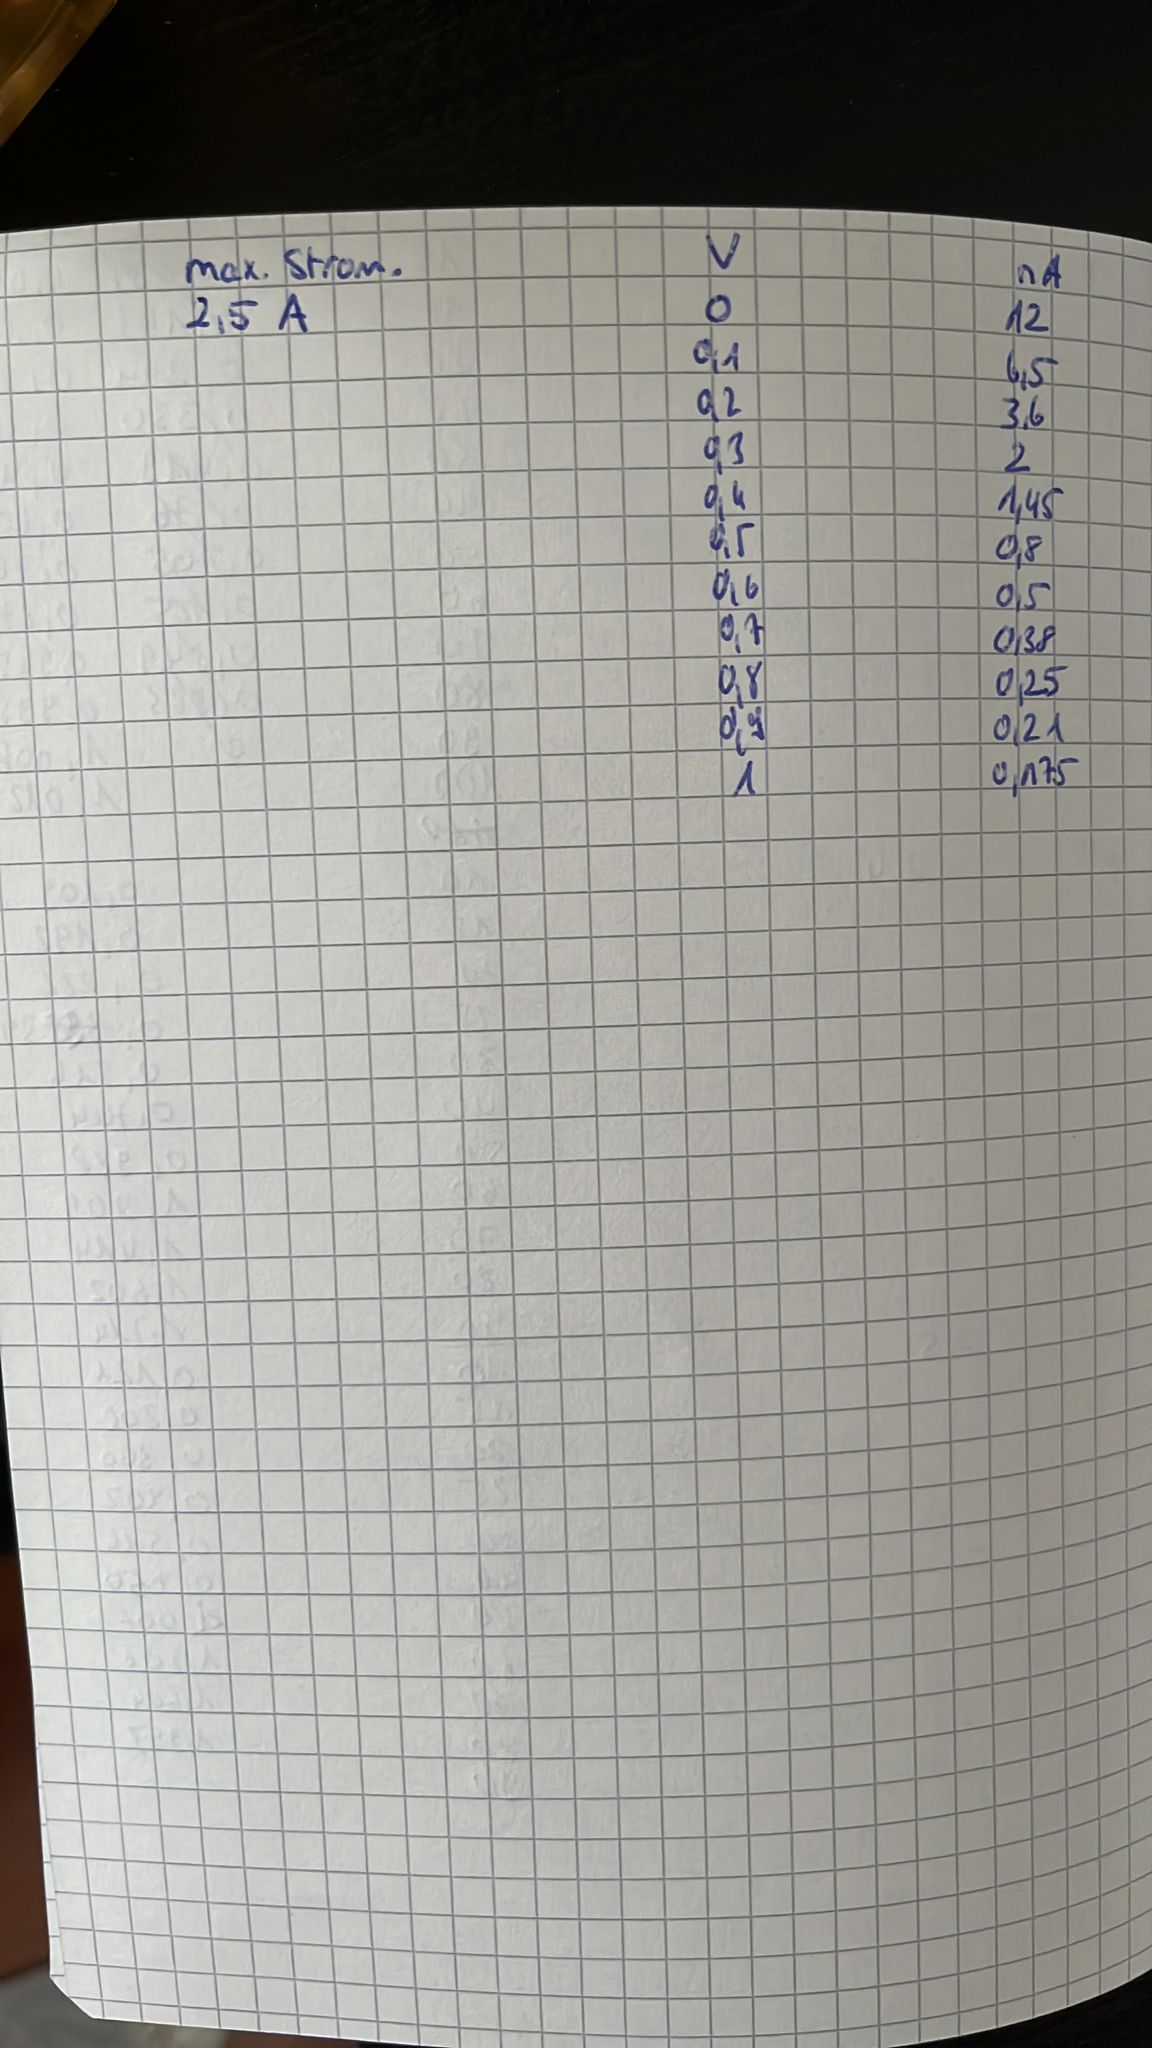 max. Strom. V nA
2,5 A 0 12
0,1 6,5
0,2 3,6
0,3 2
0,4 1,45
0,5 0,8
0,6 0,5
0,7 0,38
0,8 0,25
0,9 0,21
1 0,175